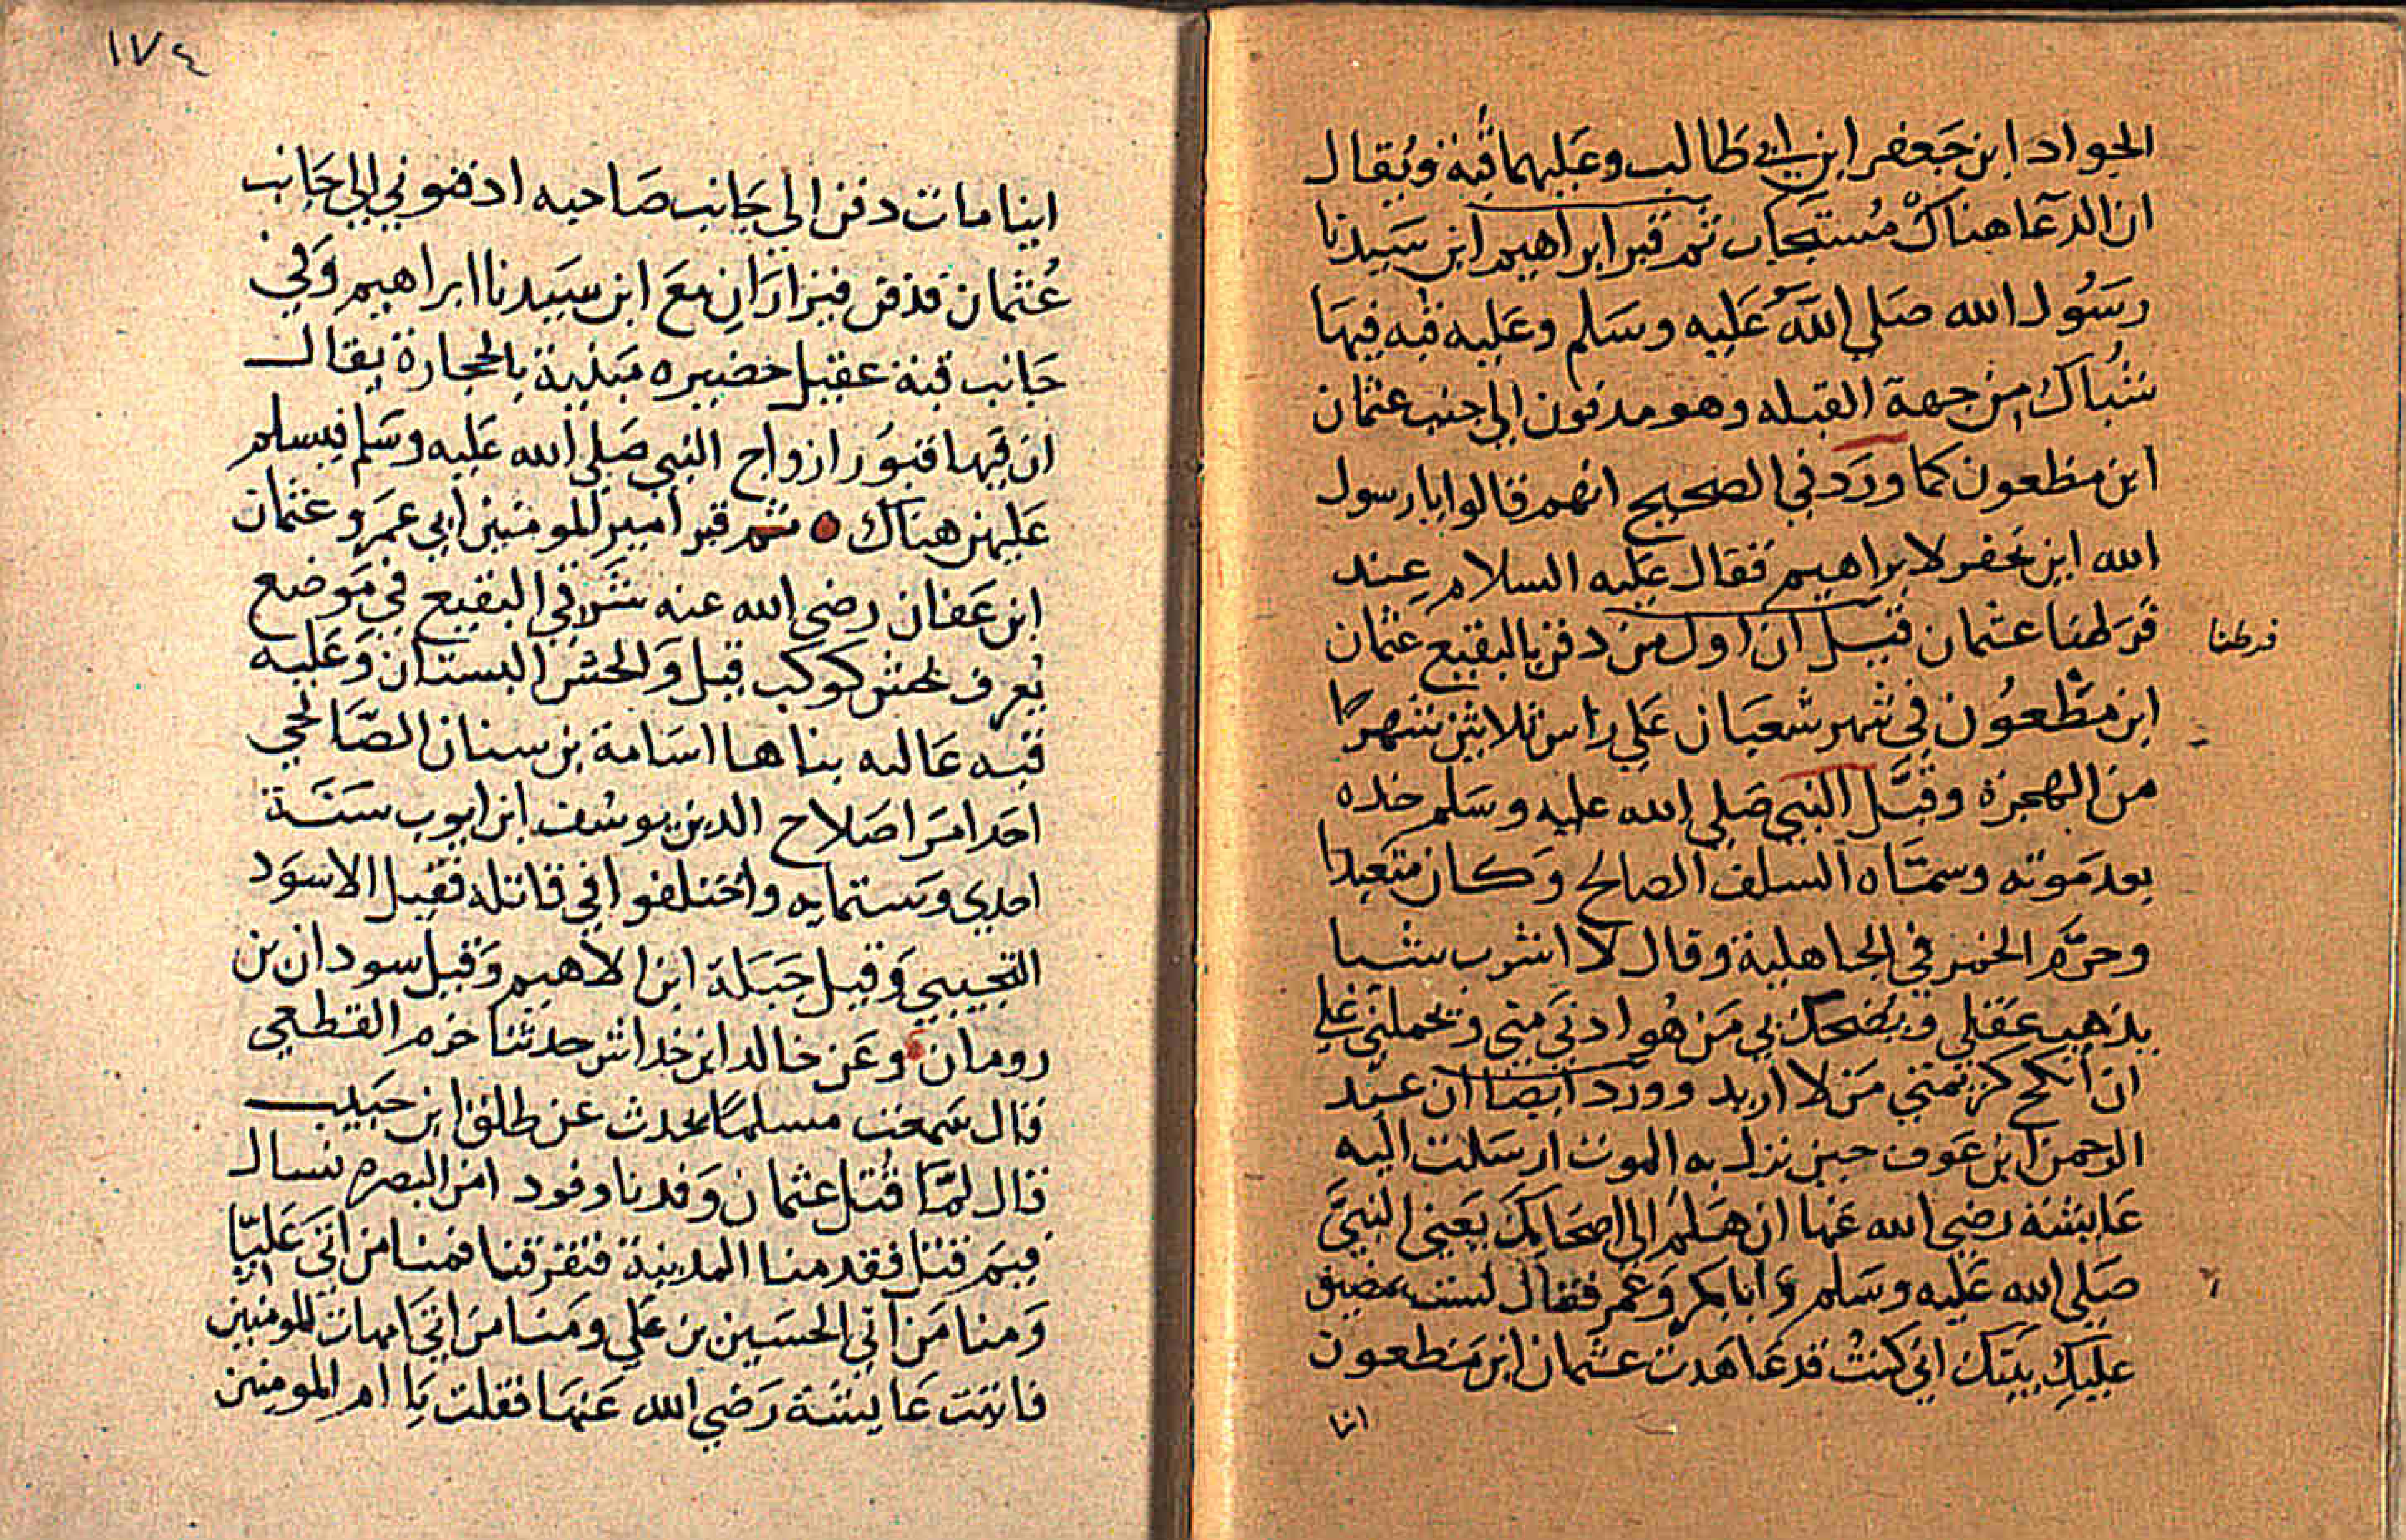 الجواد ابن جعفر ابن ابي طالب وعليهما قبة ويقال
ان الدعا هناك مستجاب ثم قبر ابراهيم ابن سيدنا
رسول الله صلي الله عليه وسلم وعليه قبه فيها
شباك من جهة القبله وهو مدفون الي جنب عثمان
ابن مظعون كما ورد في الصحيح انهم قالوا يا رسول
الله اين نحفر لابراهيم فقال عليه السلام عند
فرطنا عثمان قيل ان اول من دفن بالبقيع عثمان
فرطنا
ابن مظعون في شهر شعبان علي راس ثلاثين شهرا
من الهجرة وقبل النبي صلي الله عليه وسلم خده
بعد موته وسماه السلف الصالح وكان متعبدا
وحرم الخمر في الجاهلية وقال لا اشرب شيا
يذهب عقلي ويضحك بي من هو ادني مني ويحملني علي
ان انكح كريمتي من لا اريد وورد ايضا ان عبد
الرحمن ابن عوف حين نزل به الموت ارسلت اليه
عايشة رضي الله عنها ان هلم الي اصحابك يعني النبي
صلي الله عليه وسلم وابا بكر وعمر فقال لست بمضيق
عليك بيتك اني كنت قد عاهدت عثمان ابن مظعون
اينا
١٧٤
اينا مات دفن الي جانب صاحبه ادفنوني الي جانب
عثمان فدفن فيزاران مع ابن سيدنا ابراهيم وفي
جانب قبة عقيل حضيره مبنية بالحجارة يقال
ان فيها قبور ازواج النبي صلي الله عليه وسلم فيسلم
عليهن هناك ثم قبر امير المومنين ابي عمرو عثمان
ابن عفان رضي الله عنه شرقي البقيع في موضع
يعرف بحش كوكب قيل والحش البستان وعليه
قبه عاليه بناها اسامة بن سنان الصالحي
احد امرا صلاح الدين يوسف ابن ايوب سنة
احدي وستمايه واختلفوا في قاتله فقيل الاسود
التجيبي وقيل جبلة ابن الاهيم وقيل سودان بن
رومان وعن خالد ابن خداش حدثنا حزم القطعي
قال سمعت مسلما يحدث عن طلق ابن حبيب
قال لما قتل عثمان وفدنا وفود امن البصره نسال
فيم قتل فقدمنا المدينة فتفرقنا فمنا من اتي عليا
ومنا من اتي الحسين بن علي ومنا من اتي امهات المومنين
فاتيت عايشة رضي الله عنها فقلت يا ام المومنين